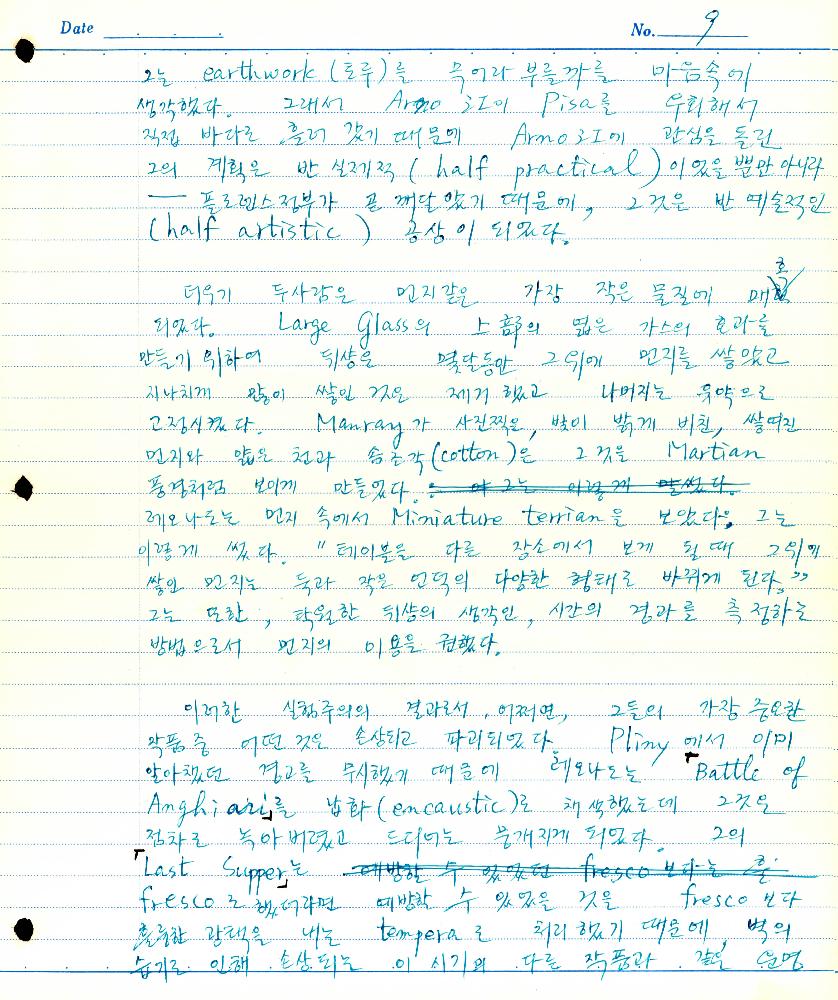 Date No. 9
그는 earthwork (토루)를 무어라 부를까를 마음속에
생각했다. 그래서 Arno 강이 Pisa를 우회해서
직접 바다로 흘러 갔기 때문에 Arno 강에 관심을 돌린
그의 계획은 반 실제적 (half practical)이었을 뿐만 아니라
— 플로렌스 정부가 곧 깨달았기 때문에, 그것은 반 예술적인
(half artistic) 공상이 되었다.
더우기 두사람은 먼지같은 가장 작은 물질에 매혹
되었다. Large Glass의 上部의 엷은 가스의 효과를
만들기 위하여 뒤샹은 몇달동안 그위에 먼지를 쌓았고
지나치게 많이 쌓인 것은 제거 했고 나머지는 유약으로
고정시켰다. Manray가 사진찍은, 빛이 밝게 비친, 쌓여진
먼지와 얇은 천과 솜조각(cotton)은 그것을 Martian
풍경처럼 보이게 만들었다. 그는 이렇게 말했다.
레오나도는 먼지 속에서 Miniature terrian을 보았다. 그는
이렇게 썼다. "테이블을 다른 장소에서 보게 될 때 그위에
쌓인 먼지는 둑과 작은 언덕의 다양한 형태로 바뀌게 된다."
그는 또한, 탁월한 뒤샹의 생각인, 시간의 경과를 측정하는
방법으로서 먼지의 이용을 권했다.
이러한 실험주의의 결과로서, 어쩌면, 그들의 가장 중요한
작품중 어떤 것은 손상되고 파괴되었다. Pliny에서 이미
알아챘던 경고를 무시했기 때문에 레오나도는 「Battle of
Anghiari」를 납화(encaustic)로 채색했는데 그것은
점차로 녹아버렸고 드디어는 뭉개지게 되었다. 그의
「Last Supper」는 예방할 수 있었던 fresco 보다는
fresco로 했더라면 예방할 수 있었을 것을 fresco 보다
훌륭한 광택을 내는 tempera로 처리했기 때문에, 벽의
습기로 인해 손상되는 이 시기의 다른 작품과 같은 운명